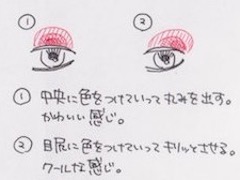 ① ②
① 中央に色をつけていって丸みを出す。
かわいい感じ。
② 目尻に色をつけていってキリッとさせる。
クールな感じ。